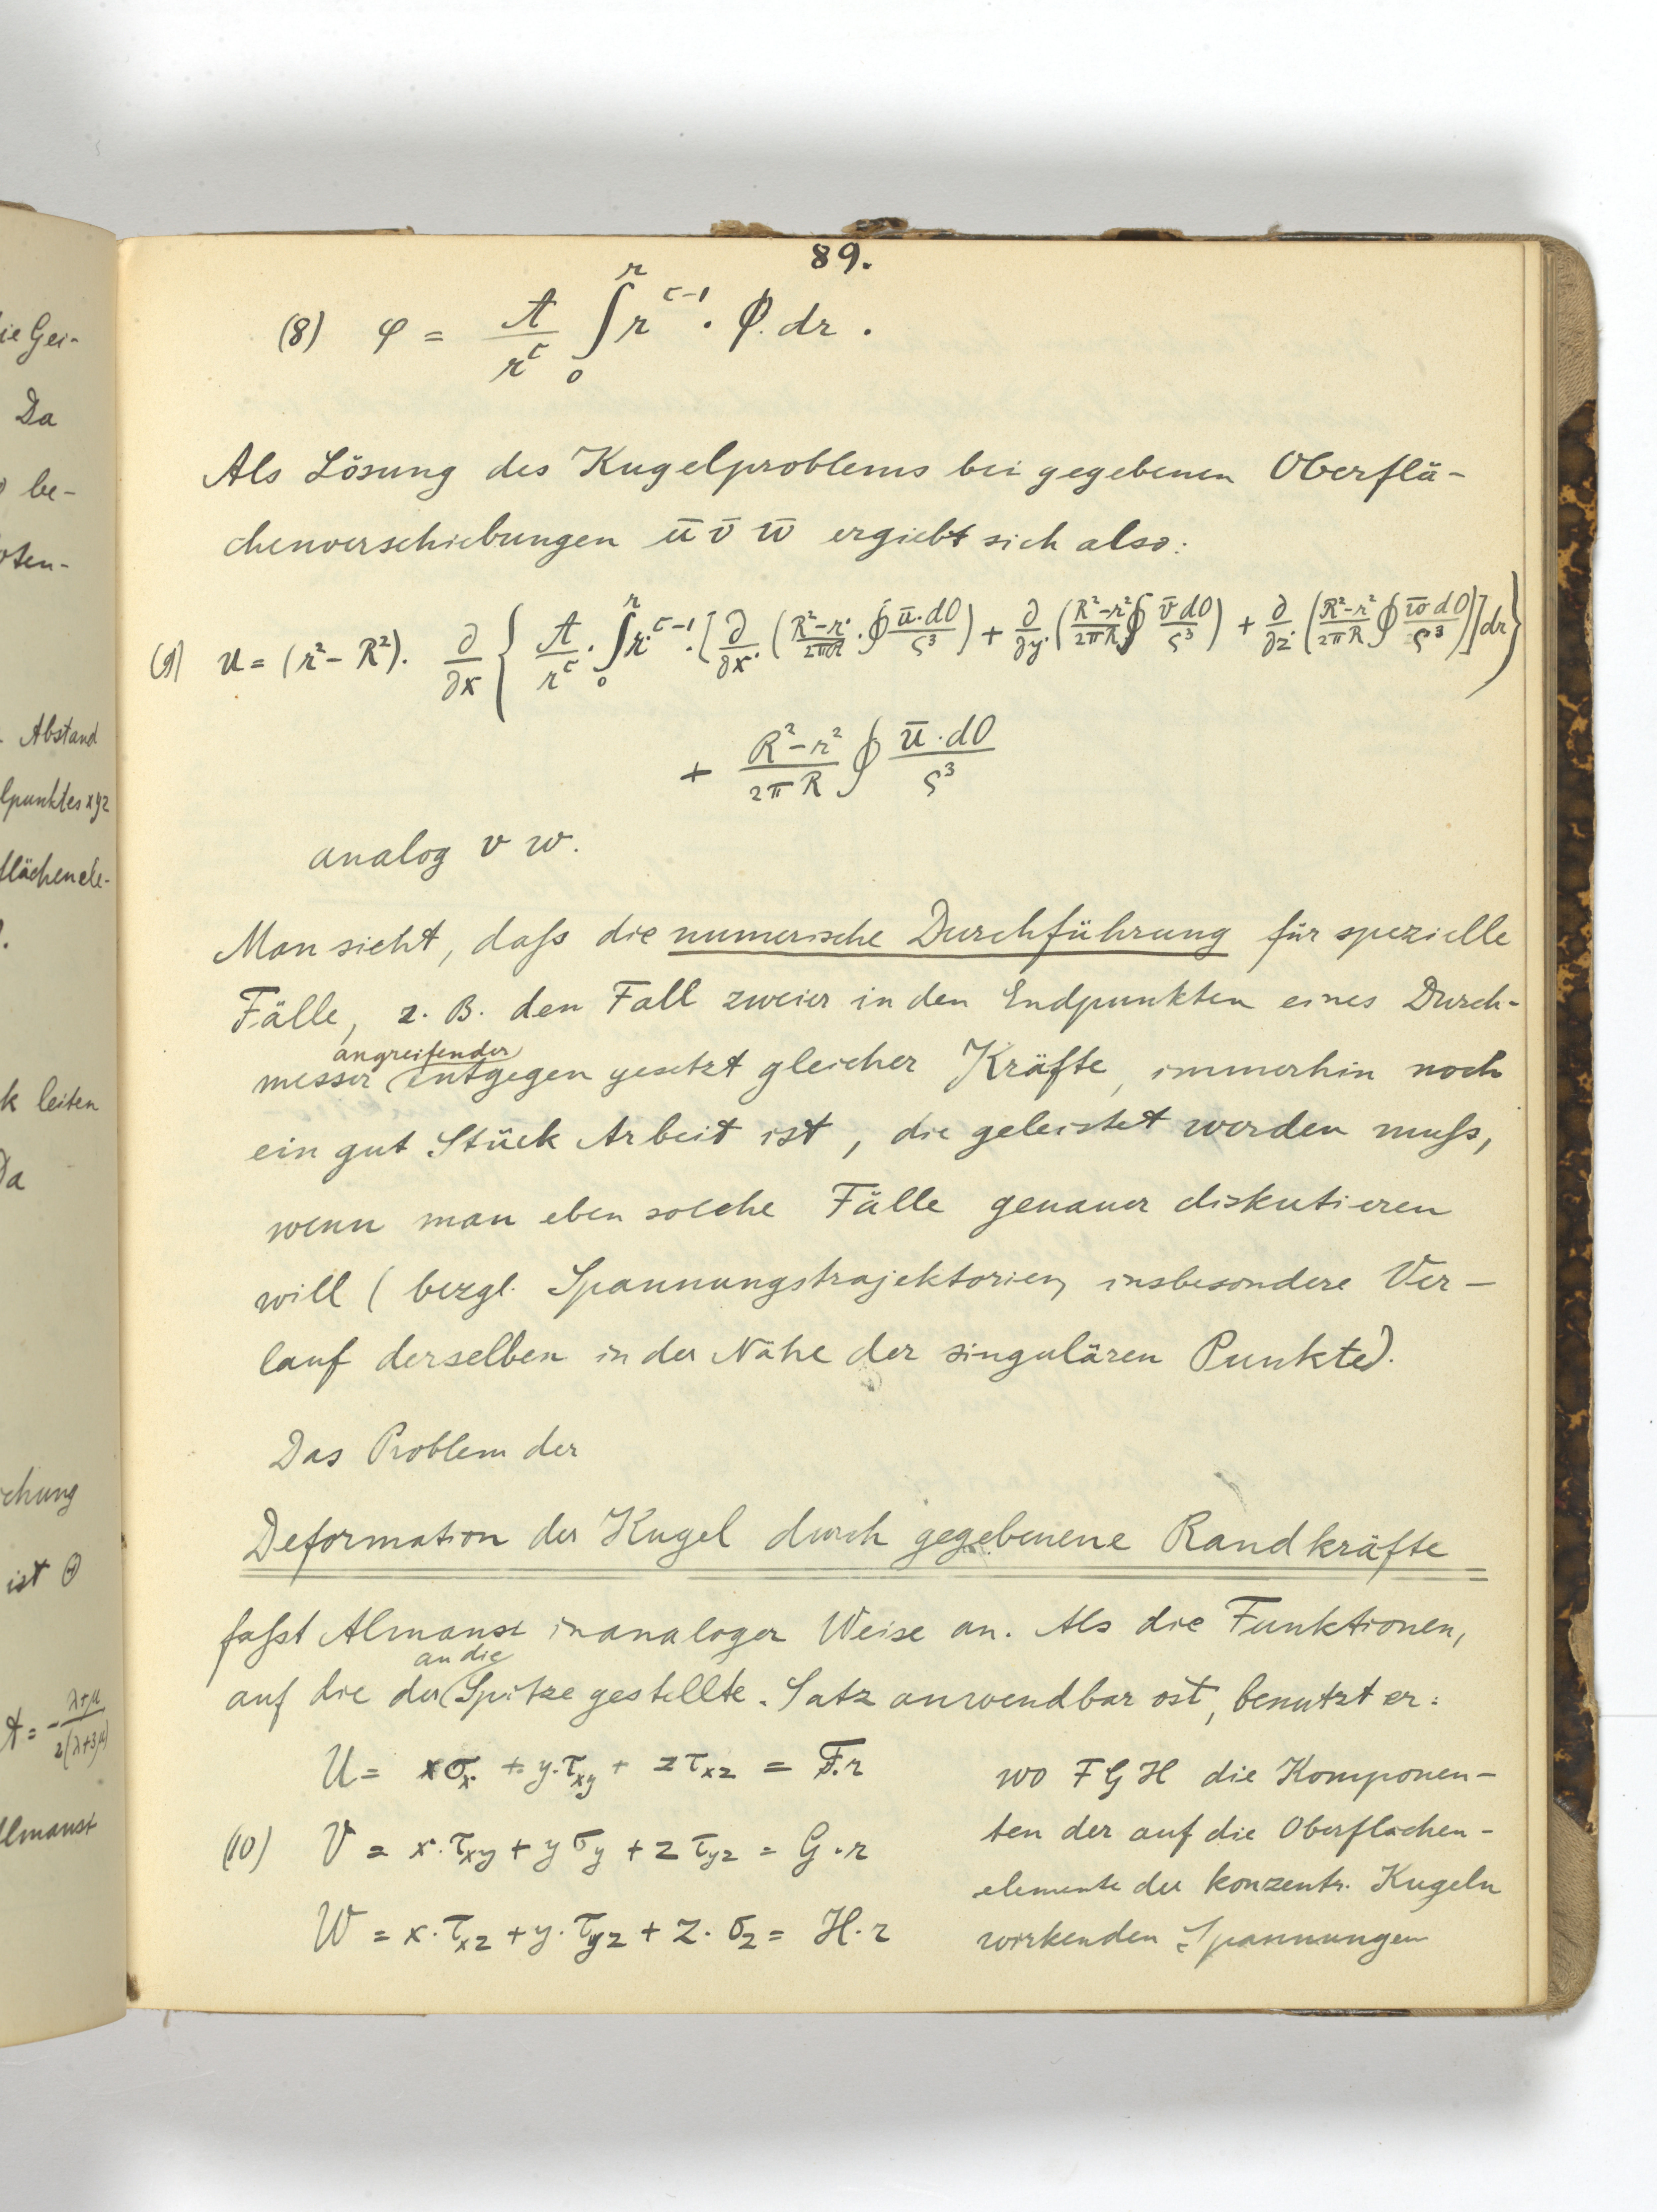 ie Gei-
Da
be-
oten-
Abstand
lpunktes xyz
flächenele-
k leiten
Da
chung
ist Θ
A = - (λ+μ) / 2(λ+3μ)
lmansi
89.
(8) φ = A/r^c ∫₀^r r^(c-1) · Φ · dr .
Als Lösung des Kugelproblems bei gegebenen Oberflä-
chenverschiebungen ū v̄ w̄ ergiebt sich also:
(9) u = (r² - R²) · ∂/∂x { A/r^c · ∫₀^r r^(c-1) · [ ∂/∂x · ( (R²-r²)/(2πR) · ∮ ū·dO/ς³ ) + ∂/∂y · ( (R²-r²)/(2πR) ∮ v̄ dO/ς³ ) + ∂/∂z · ( (R²-r²)/(2πR) ∮ w̄ dO/ς³ ) ] dr }
+ (R²-r²)/(2πR) ∮ ū·dO/ς³
analog v w.
Man sieht, daſs die numerische Durchführung für spezielle
Fälle, z. B. den Fall zweier in den Endpunkten eines Durch-
angreifender
messer entgegen gesetzt gleicher Kräfte, immerhin noch
ein gut Stück Arbeit ist, die geleistet werden muſs,
wenn man eben solche Fälle genauer diskutieren
will (bezgl. Spannungstrajektorien, insbesondere Ver-
lauf derselben in der Nähe der singulären Punkte).
Das Problem der
Deformation der Kugel durch gegebenene Randkräfte
faſst Almansi in analoger Weise an. Als die Funktionen,
an die
auf die der Spitze gestellte Satz anwendbar ist, benutzt er:
U = xσₓ + y·τ_xy + zτ_xz = F·r
wo F G H die Komponen-
ten der auf die Oberflächen-
(10) V = x·τ_xy + yσ_y + zτ_yz = G·r
elemente der konzentr. Kugeln
W = x·τ_xz + y·τ_yz + z·σ_z = H·r
wirkenden Spannungen